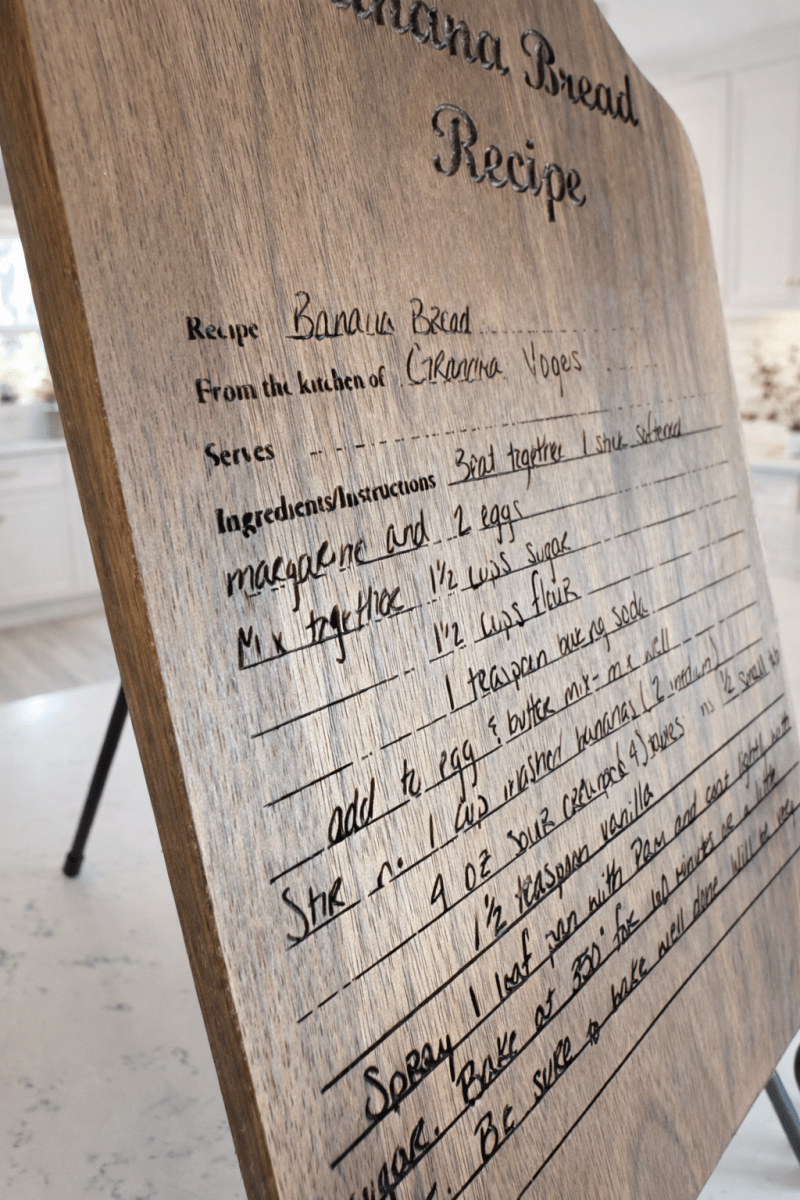 Banana Bread
Recipe
Recipe Banana Bread
From the kitchen of Grandma Voges
Serves
Ingredients/Instructions Beat together 1 stick softened
margarine and 2 eggs
Mix together 1½ cups sugar
1½ cups flour
1 teaspoon baking soda
add to egg & butter mix - mix well
Stir in 1 cup mashed bananas (2 medium)
4 oz sour cream ½ small
1½ teaspoon vanilla
Spray 1 loaf pan with Pam and coat lightly with
sugar. Bake at 350° for 60 minutes or a little
Be sure to bake well done will be